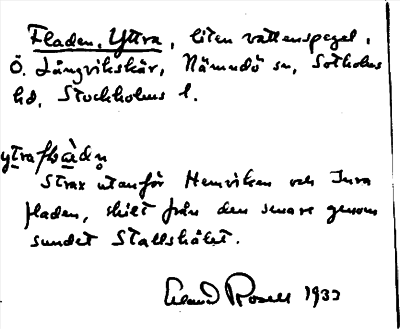 Fladen, Yttra, liten vattenspegel,
Ö. Långvikskär, Nämndö sn, Sotholms
hd, Stockholms l.
ytraflà̱dn̥
Strax utanför Hemviken och Inra
fladen, skilt från den senare genom
sundet Stallshålet.
Erland Rosell 1933